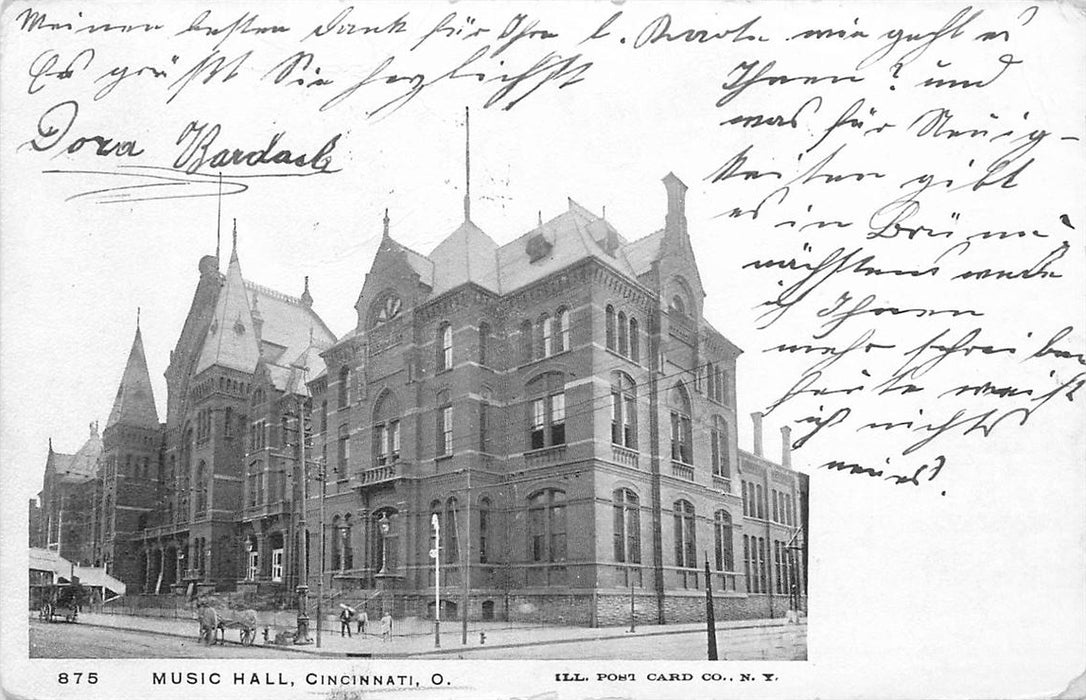 Meinen besten Dank für Ihre l. Karte. wie geht es
Ihnen? und
was für Neuig-
keiten gibt
es in Brünn,
nächstens werde
ich Ihnen
mehr schreiben
heute weiß
ich nichts
neues.
Es grüßt Sie herzlichst
Dora Bardach
875 MUSIC HALL, CINCINNATI, O. ILL. POST CARD CO., N. Y.